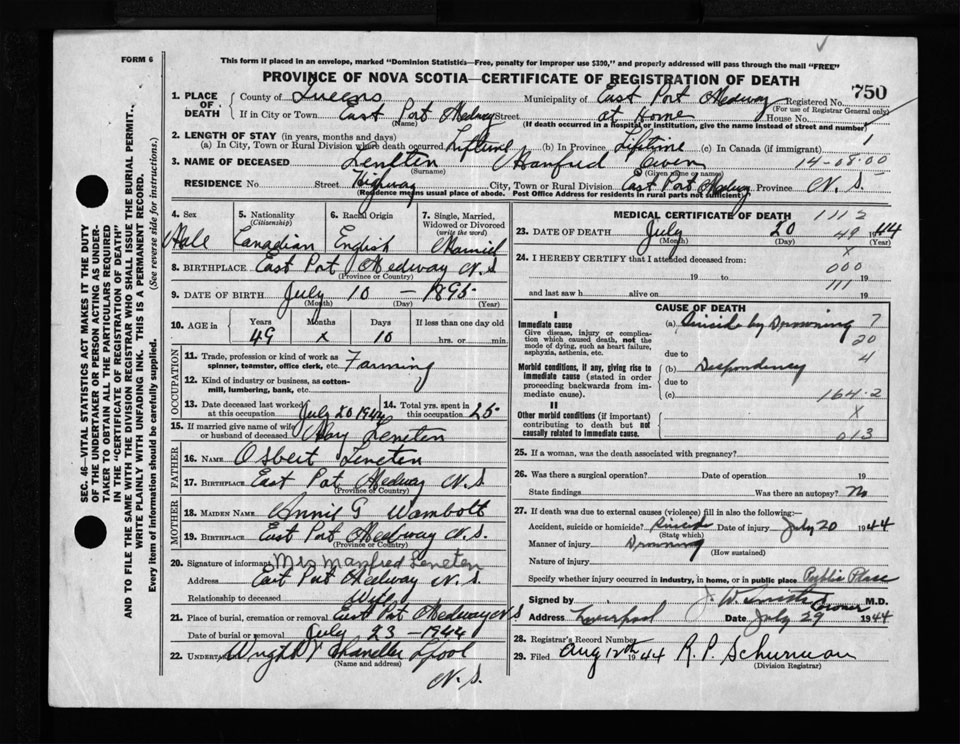 FORM 6
This form if placed in an envelope, marked "Dominion Statistics—Free, penalty for improper use $300," and properly addressed will pass through the mail "FREE"
PROVINCE OF NOVA SCOTIA—CERTIFICATE OF REGISTRATION OF DEATH
750
1. PLACE OF DEATH County of Queens Municipality of East Port Medway Registered No.
(For use of Registrar General only)
If in City or Town East Port Medway Street at Home House No.
(Name) (If death occurred in a hospital or institution, give the name instead of street and number)
2. LENGTH OF STAY (in years, months and days)
(a) In City, Town or Rural Division where death occurred Lifetime (b) In Province Lifetime (c) In Canada (if immigrant) 1
3. NAME OF DECEASED Manfred Owen 14-08.00
(Surname) (Given name or names)
RESIDENCE No. Street Highway City, Town or Rural Division East Port Medway Province N. S.
(Residence means usual place of abode. Post Office Address for residents in rural parts not sufficient)
4. Sex 5. Nationality 6. Racial Origin 7. Single, Married, Widowed or Divorced
(Citizenship) (write the word)
Male Canadian English Married
8. BIRTHPLACE East Port Medway N. S
(Province or Country)
9. DATE OF BIRTH July 10 - 1895
(Month) (Day) (Year)
10. AGE in Years Months Days If less than one day old
49 x 10 hrs. or min.
OCCUPATION
11. Trade, profession or kind of work as spinner, teamster, office clerk, etc. Farming
12. Kind of industry or business, as cotton-mill, lumbering, bank, etc.
13. Date deceased last worked at this occupation July 20 1944 14. Total yrs. spent in this occupation 25
15. If married give name of wife or husband of deceased Leneten
FATHER
16. NAME Osbert Leneten
17. BIRTHPLACE East Port Medway N. S
(Province or Country)
MOTHER
18. MAIDEN NAME Annie G Wambolt
19. BIRTHPLACE East Port Medway N. S.
(Province or Country)
20. Signature of informant Mrs Manfred Leneten
Address East Port Medway N. S.
Relationship to deceased Wife
21. Place of burial, cremation or removal East Port Medway N S
Date of burial or removal July 23 - 1944
22. UNDERTAKER Wright & Chandler L'pool
(Name and address)
N. S.
MEDICAL CERTIFICATE OF DEATH 1112
23. DATE OF DEATH July 20 49 1944
(Month) (Day) (Year)
x
24. I HEREBY CERTIFY that I attended deceased from: 000
19 to 19
111
and last saw h alive on 19
CAUSE OF DEATH
I
Immediate cause
Give disease, injury or complication which caused death, not the mode of dying, such as heart failure, asphyxia, asthenia, etc.
(a) Suicide by Drowning 7
20
due to 4
Morbid conditions, if any, giving rise to immediate cause (stated in order proceeding backwards from immediate cause).
(b) Despondency
due to
(c) 164.2
II
Other morbid conditions (if important) contributing to death but not causally related to immediate cause.
x
013
25. If a woman, was the death associated with pregnancy?
26. Was there a surgical operation? Date of operation 19
State findings Was there an autopsy? No
27. If death was due to external causes (violence) fill in also the following:—
Accident, suicide or homicide? Suicide Date of injury July 20 1944
(State which)
Manner of injury Drowning
(How sustained)
Nature of injury
Specify whether injury occurred in industry, in home, or in public place Public Place
Signed by J. W. M.D.
Address Liverpool Date July 29 1944
28. Registrar's Record Number
29. Filed Aug 12th 1944 R. P. Schurman
(Division Registrar)
SEC. 46—VITAL STATISTICS ACT MAKES IT THE DUTY
OF THE UNDERTAKER OR PERSON ACTING AS UNDER-
TAKER TO OBTAIN ALL THE PARTICULARS REQUIRED
IN THE "CERTIFICATE OF REGISTRATION OF DEATH"
AND TO FILE THE SAME WITH THE DIVISION REGISTRAR WHO SHALL ISSUE THE BURIAL PERMIT.
WRITE PLAINLY WITH UNFADING INK. THIS IS A PERMANENT RECORD.
Every item of information should be carefully supplied. (See reverse side for instructions.)